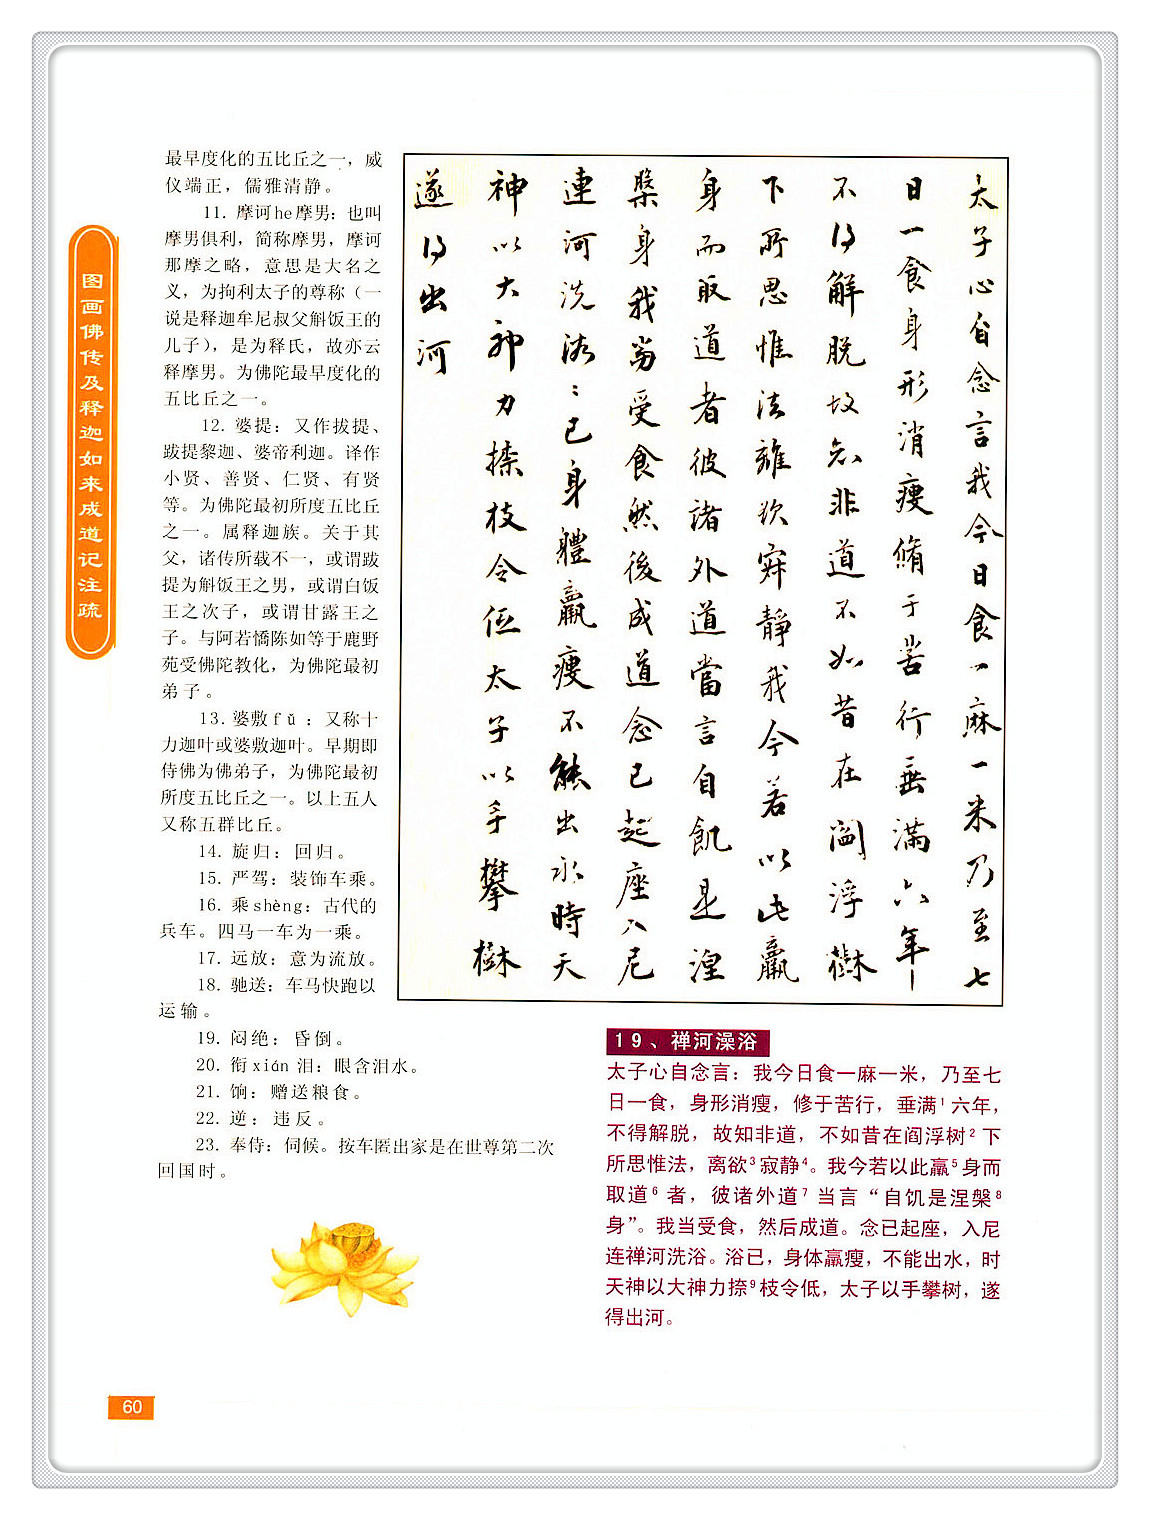 图画佛传及释迦如来成道记注疏
最早度化的五比丘之一，威
仪端正，儒雅清静。
11. 摩诃he摩男：也叫
摩男俱利，简称摩男，摩诃
那摩之略，意思是大名之
义，为拘利太子的尊称（一
说是释迦牟尼叔父斛饭王的
儿子），是为释氏，故亦云
释摩男。为佛陀最早度化的
五比丘之一。
12. 婆提：又作拔提、
跋提黎迦、婆帝利迦。译作
小贤、善贤、仁贤、有贤
等。为佛陀最初所度五比丘
之一。属释迦族。关于其
父，诸传所载不一，或谓跋
提为斛饭王之男，或谓白饭
王之次子，或谓甘露王之
子。与阿若憍陈如等于鹿野
苑受佛陀教化，为佛陀最初
弟子。
13. 婆敷fǔ：又称十
力迦叶或婆敷迦叶。早期即
侍佛为佛弟子，为佛陀最初
所度五比丘之一。以上五人
又称五群比丘。
14. 旋归：回归。
15. 严驾：装饰车乘。
16. 乘shèng：古代的
兵车。四马一车为一乘。
17. 远放：意为流放。
18. 驰送：车马快跑以
运输。
19. 闷绝：昏倒。
20. 衔xián泪：眼含泪水。
21. 饷：赠送粮食。
22. 逆：违反。
23. 奉侍：伺候。按车匿出家是在世尊第二次
回国时。
太子心自念言我今日食一麻一米乃至七
日一食身形消瘦脩于苦行垂满六年
不得解脱故知非道不如昔在阎浮樹
下所思惟法離欲寂静我今若以此羸
身而取道者彼諸外道當言自飢是涅
槃身我當受食然後成道念已起座入尼
連河洗浴浴已身體羸瘦不能出水時天
神以大神力捺枝令低太子以手攀樹
遂得出河
19、禅河澡浴
太子心自念言：我今日食一麻一米，乃至七
日一食，身形消瘦，修于苦行，垂满¹六年，
不得解脱，故知非道，不如昔在阎浮树²下
所思惟法，离欲³寂静⁴。我今若以此羸⁵身而
取道⁶者，彼诸外道⁷当言“自饥是涅槃⁸
身”。我当受食，然后成道。念已起座，入尼
连禅河洗浴。浴已，身体羸瘦，不能出水，时
天神以大神力捺⁹枝令低，太子以手攀树，遂
得出河。
60